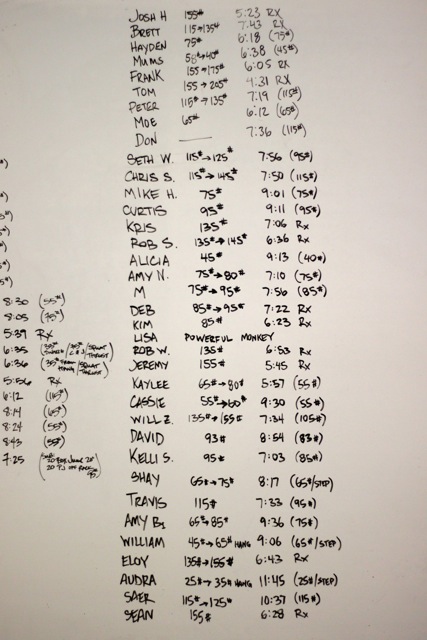 JOSH H 155# 5:23 RX
BRETT 115→135# 7:43 RX
HAYDEN 75# 6:18 (75#)
MUMS 58#→40# 6:38 (45#)
FRANK 155→175# 6:05 RX
TOM 155→205# 4:31 RX
PETER 115#→135# 7:19 (115#)
MOE 65# 6:12 (65#)
DON — 7:36 (115#)
SETH W. 115#→125# 7:56 (95#)
CHRIS S. 115#→145# 7:50 (115#)
MIKE H. 75# 9:01 (75#)
CURTIS 95# 9:11 (95#)
KRIS 135# 7:06 Rx
ROB S. 135#→145# 6:36 Rx
ALICIA 45# 9:13 (40#)
AMY N. 75#→80# 7:10 (75#)
M 75#→95# 7:56 (85#)
DEB 85#→95# 7:22 Rx
KIM 85# 6:23 Rx
LISA POWERFUL MONKEY
ROB W. 135# 6:53 Rx
JEREMY 155# 5:45 Rx
KAYLEE 65#→80# 5:57 (55#)
CASSIE 55#→60# 9:30 (55#)
WILL Z. 135#→155# 7:34 (105#)
DAVID 93# 8:54 (83#)
KELLI S. 95# 7:03 (85#)
SHAY 65#→75# 8:17 (65#/STEP)
TRAVIS 115# 7:33 (95#)
AMY B. 65#→85# 9:36 (75#)
WILLIAM 45#→65# HANG 9:06 (65#/STEP)
ELOY 135#→155# 6:43 Rx
AUDRA 25#→35# HANG 11:45 (25#/STEP)
SAER 115#→125# 10:37 (115#)
SEAN 155# 6:28 Rx
8:30 (55#)
8:05 (75#)
5:39 Rx
6:35
6:36
5:56 Rx
6:12 (115#)
8:14 (65#)
8:24 (55#)
8:43 (55#)
7:25